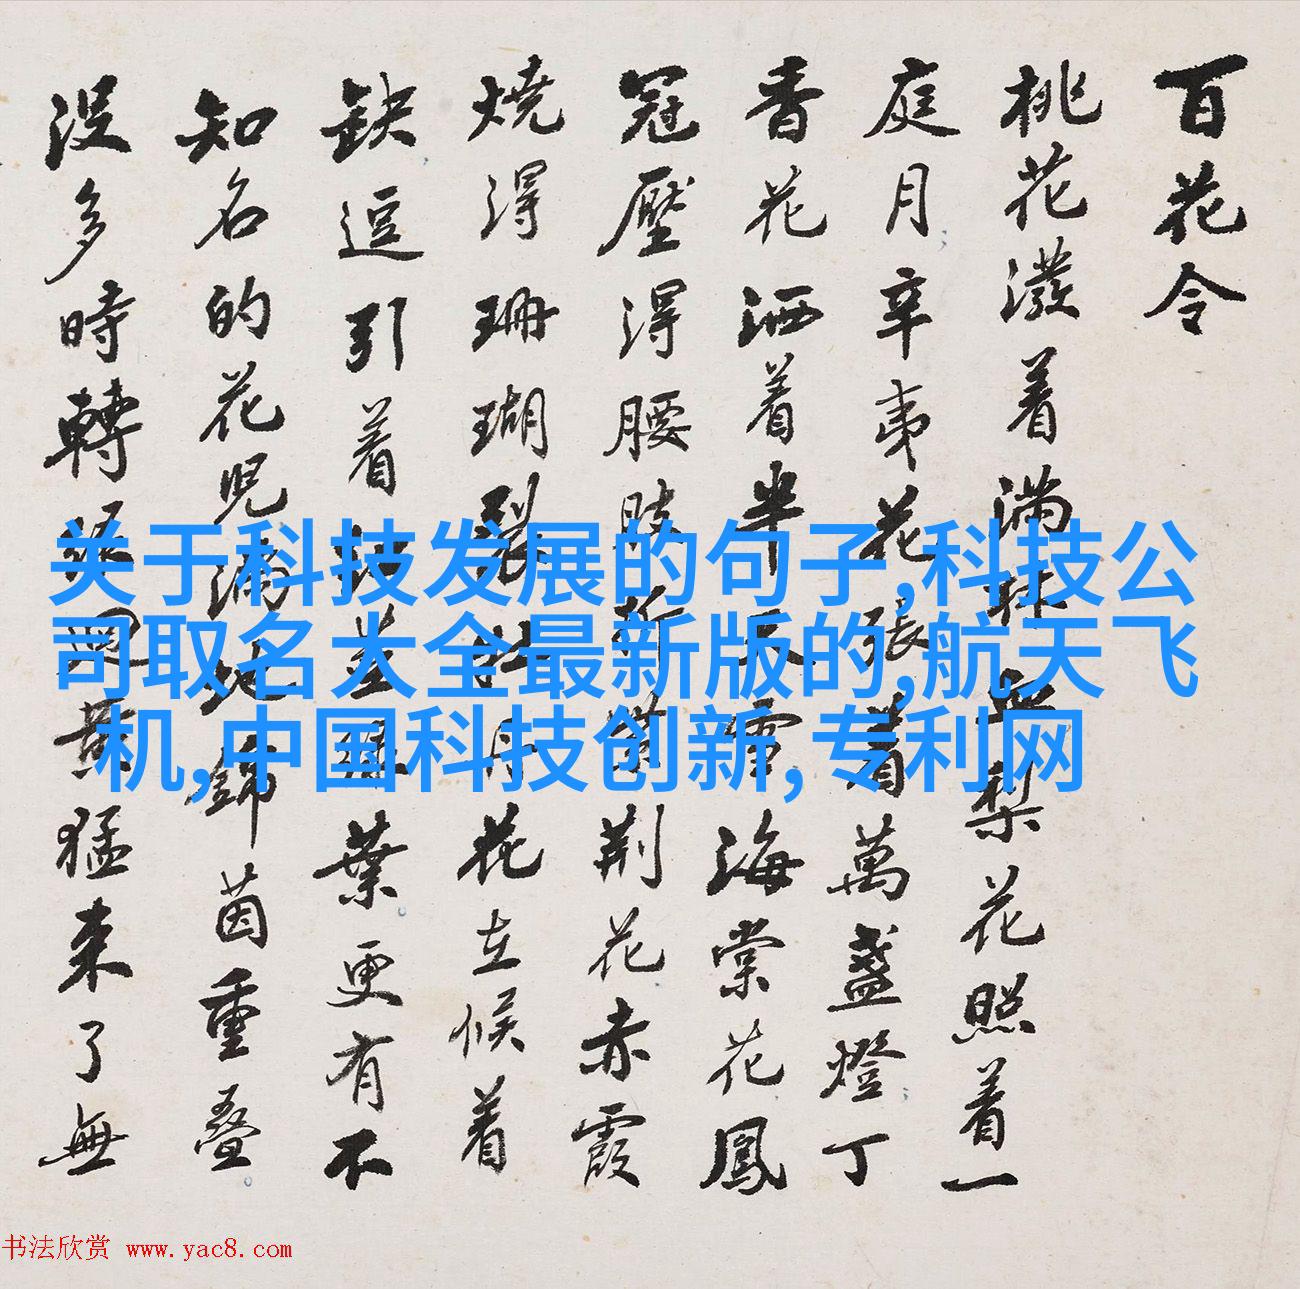 百花令
桃花潑着滿林血梨花照着一
庭月辛夷花張着萬盞燈丁
香花洒着半天雪海棠花鳳
冠壓得腰肢折紫荆花赤霞
燒得珊瑚裂牡丹花立候着
缺逗引着葉更有不
知名的花兒滿地錦茵重叠
沒多時轉黄猛来了無
关于科技发展的句子,科技公
司取名大全最新版的,航天飞
机,中国科技创新,专利网
书法欣赏 www.yac8.com